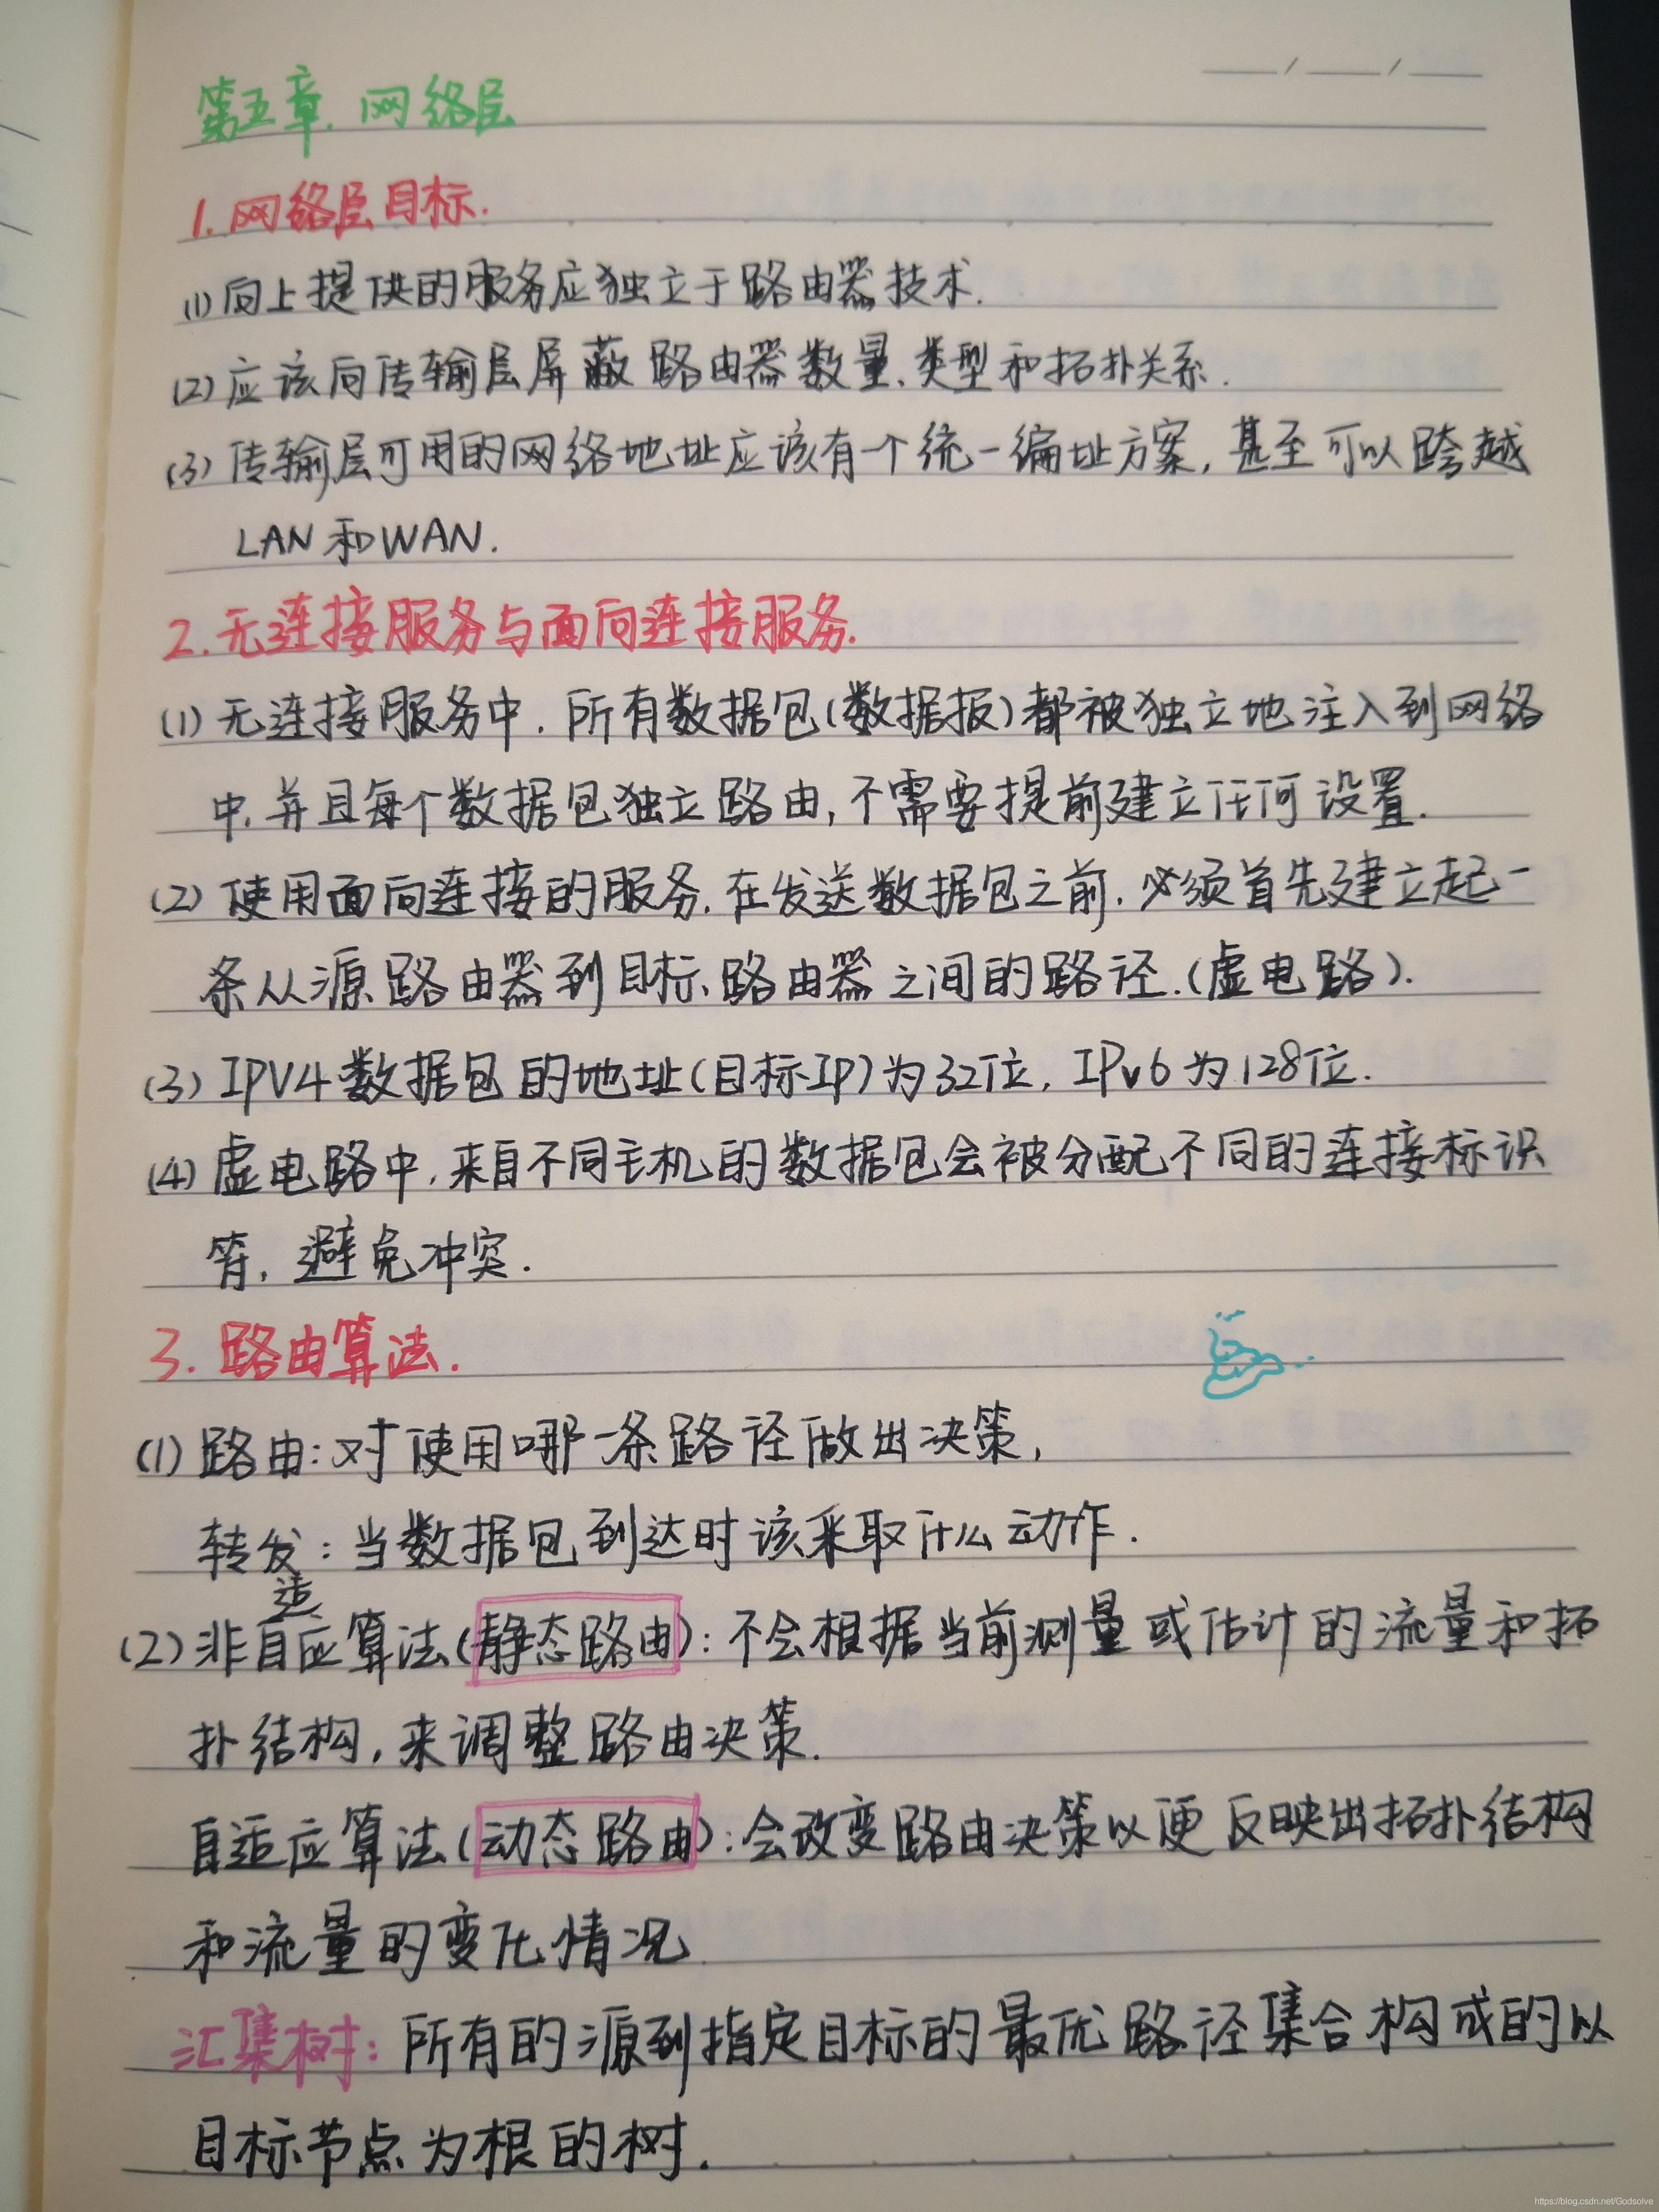 第五章. 网络层
1. 网络层目标.
(1) 向上提供的服务应独立于路由器技术.
(2) 应该向传输层屏蔽路由器数量、类型和拓扑关系.
(3) 传输层可用的网络地址应该有一个统一编址方案, 甚至可以跨越
LAN 和 WAN.
2. 无连接服务与面向连接服务.
(1) 无连接服务中, 所有数据包(数据报)都被独立地注入到网络
中, 并且每个数据包独立路由, 不需要提前建立任何设置.
(2) 使用面向连接的服务, 在发送数据包之前, 必须首先建立起一
条从源路由器到目标路由器之间的路径.(虚电路).
(3) IPV4 数据包的地址(目标IP)为32位, IPv6 为128位.
(4) 虚电路中, 来自不同主机的数据包会被分配不同的连接标识
符, 避免冲突.
3. 路由算法.
(1) 路由: 对使用哪一条路径做出决策,
转发: 当数据包到达时该采取什么动作.
(2) 非自适应算法(静态路由): 不会根据当前测量或估计的流量和拓
扑结构, 来调整路由决策.
自适应算法(动态路由): 会改变路由决策以便反映出拓扑结构
和流量的变化情况
汇集树: 所有的源到指定目标的最优路径集合构成的以
目标节点为根的树.
https://blog.csdn.net/Godsolve